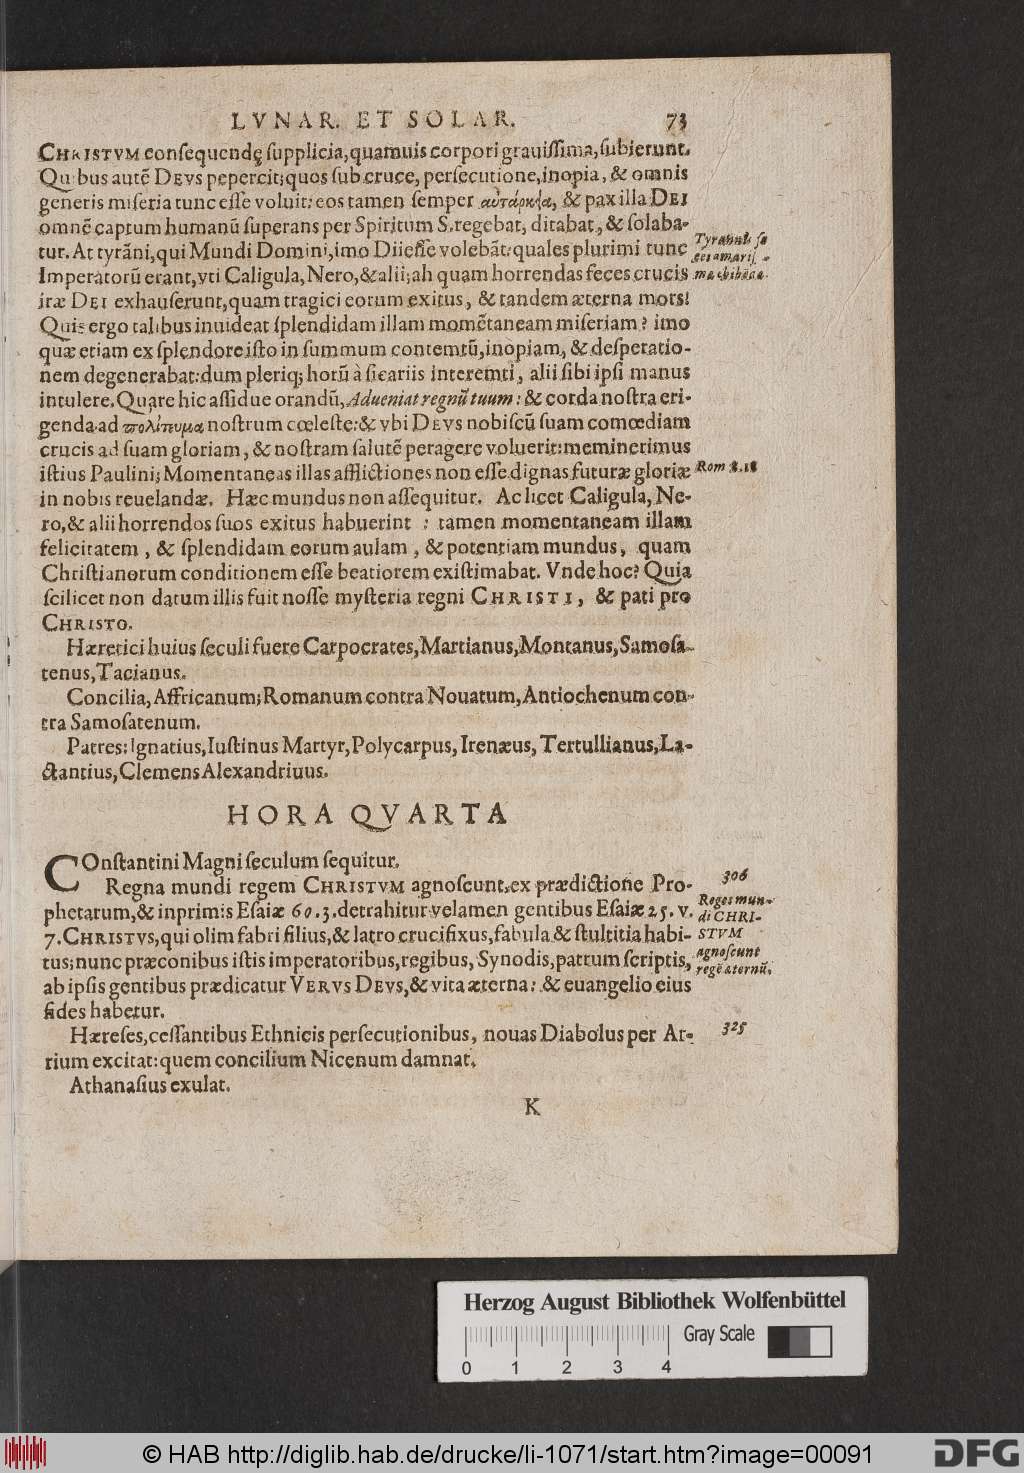 LVNAR. ET SOLAR. 73
CHRISTVM conſequendę ſupplicia, quamuis corpori grauiſſima, ſubierunt.
Quibus autē DEVS pepercit; quos ſub cruce, perſecutione, inopia, & omnis
generis miſeria tunc eſſe voluit: eos tamen ſemper & pax illa DEI
omnē captum humanū ſuperans per Spiritum S. regebat, ditabat, & ſolaba-
tur. At tyrāni, qui Mundi Domini, imo Dii eſſe volebāt: quales plurimi tunc
Imperatorū erant, vti Caligula, Nero, & alii; ah quam horrendas feces crucis
iræ DEI exhauſerunt, quam tragici eorum exitus, & tandem æterna mors!
Quis ergo talibus inuideat ſplendidam illam momētaneam miſeriam? imo
quæ etiam ex ſplendore iſto in ſummum contemtū, inopiam, & deſperatio-
nem degenerabat: dum pleriq; horū à ſicariis interemti, alii ſibi ipſi manus
intulere. Quare hic aſſidue orandū, Adueniat regnū tuum: & corda noſtra eri-
genda ad πολίτευμα noſtrum cœleſte: & vbi DEVS nobiſcū ſuam comœdiam
crucis ad ſuam gloriam, & noſtram ſalutē peragere voluerit: meminerimus
iſtius Paulini; Momentaneas illas afflictiones non eſſe dignas futuræ gloriæ
Rom 8.18
in nobis reuelandæ. Hæc mundus non aſſequitur. Ac licet Caligula, Ne-
ro, & alii horrendos ſuos exitus habuerint : tamen momentaneam illam
felicitatem, & ſplendidam eorum aulam, & potentiam mundus, quam
Chriſtianorum conditionem eſſe beatiorem exiſtimabat. Vnde hoc? Quia
ſcilicet non datum illis fuit noſſe myſteria regni CHRISTI, & pati pro
CHRISTO.
Hæretici huius ſeculi fuere Carpocrates, Martianus, Montanus, Samoſa-
tenus, Tacianus.
Concilia, Affricanum; Romanum contra Nouatum, Antiochenum con-
tra Samoſatenum.
Patres: Ignatius, Iuſtinus Martyr, Polycarpus, Irenæus, Tertullianus, La-
ctantius, Clemens Alexandriuus.
HORA QVARTA
COnſtantini Magni ſeculum ſequitur.
Regna mundi regem CHRISTVM agnoſcunt, ex prædictione Pro-
306
phetarum, & inprimis Eſaiæ 60.3. detrahitur velamen gentibus Eſaiæ 25. v.
7. CHRISTVS, qui olim fabri filius, & latro crucifixus, fabula & ſtultitia habi-
tus; nunc præconibus iſtis imperatoribus, regibus, Synodis, patrum ſcriptis,
ab ipſis gentibus prædicatur VERVS DEVS, & vita æterna: & euangelio eius
fides habetur.
Reges mun-
di CHRI-
STVM
agnoſcunt
regē æternū.
Hæreſes, ceſſantibus Ethnicis perſecutionibus, nouas Diabolus per Ar-
325
rium excitat: quem concilium Nicenum damnat.
Athanaſius exulat.
K
Herzog August Bibliothek Wolfenbüttel
Gray Scale
0 1 2 3 4
© HAB http://diglib.hab.de/drucke/li-1071/start.htm?image=00091
DFG